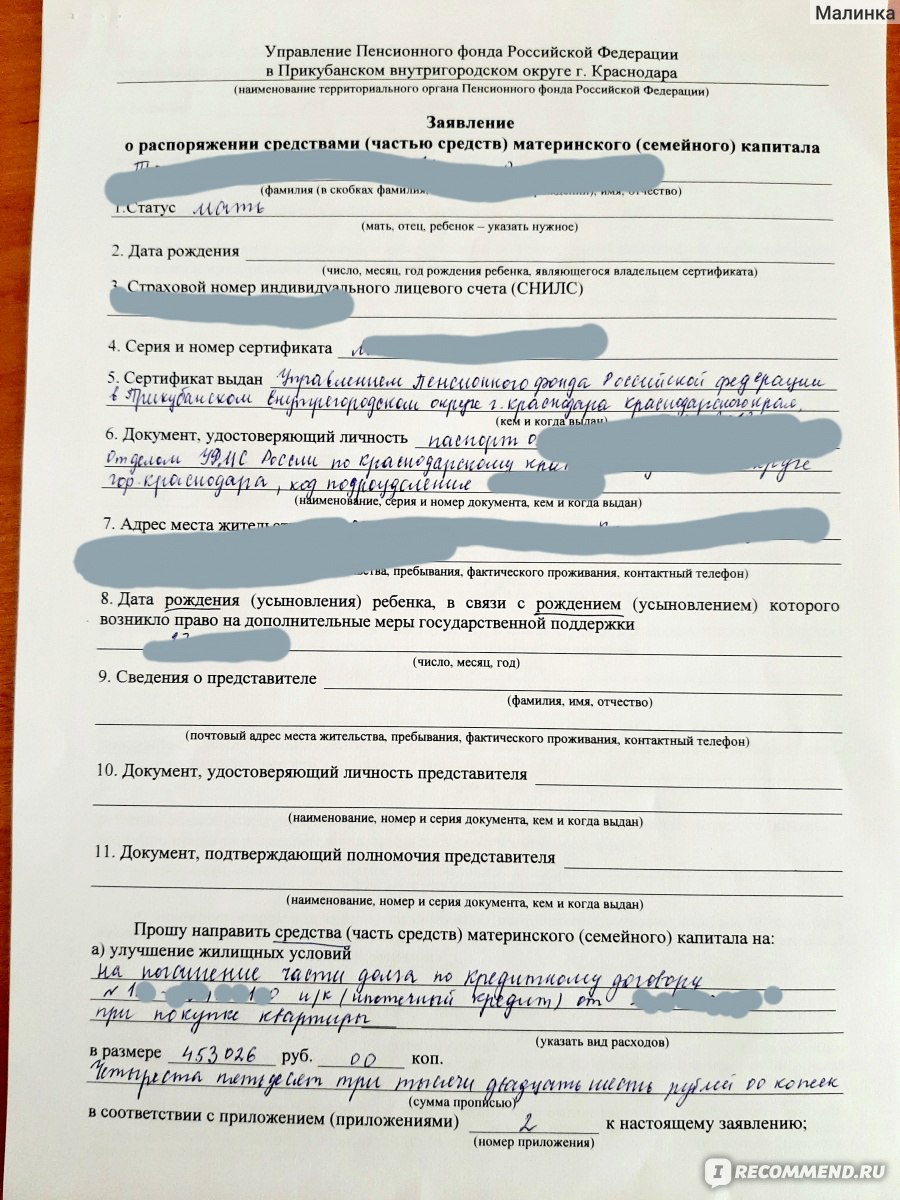 Малинка
Управление Пенсионного фонда Российской Федерации
в Прикубанском внутригородском округе г. Краснодара
(наименование территориального органа Пенсионного фонда Российской Федерации)
Заявление
о распоряжении средствами (частью средств) материнского (семейного) капитала
(фамилия (в скобках фамилия, имя, отчество)
1. Статус мать
(мать, отец, ребенок – указать нужное)
2. Дата рождения
(число, месяц, год рождения ребенка, являющегося владельцем сертификата)
3. Страховой номер индивидуального лицевого счета (СНИЛС)
4. Серия и номер сертификата
5. Сертификат выдан Управлением Пенсионного фонда Российской федерации
в Прикубанском Внутригородском округе г. краснодара краснодарского края,
(кем и когда выдан)
6. Документ, удостоверяющий личность паспорт
отделом УФМС России по краснодарскому округе
гор. краснодара, код подроуделение
(наименование, серия и номер документа, кем и когда выдан)
7. Адрес места
пребывания, фактического проживания, контактный телефон)
8. Дата рождения (усыновления) ребенка, в связи с рождением (усыновлением) которого
возникло право на дополнительные меры государственной поддержки
(число, месяц, год)
9. Сведения о представителе
(фамилия, имя, отчество)
(почтовый адрес места жительства, пребывания, фактического проживания, контактный телефон)
10. Документ, удостоверяющий личность представителя
(наименование, номер и серия документа, кем и когда выдан)
11. Документ, подтверждающий полномочия представителя
(наименование, номер и серия документа, кем и когда выдан)
Прошу направить средства (часть средств) материнского (семейного) капитала на:
а) улучшение жилищных условий
на погашение части долга по кредитному договору
и/к (ипотечный кредит) от
при покупке квартиры
(указать вид расходов)
в размере 453026 руб. 00 коп.
Четыреста пятьдесят три тысячи двадцать шесть рублей 00 копеек
(сумма прописью)
в соответствии с приложением (приложениями) 2 к настоящему заявлению;
(номер приложения)
IRECOMMEND.RU